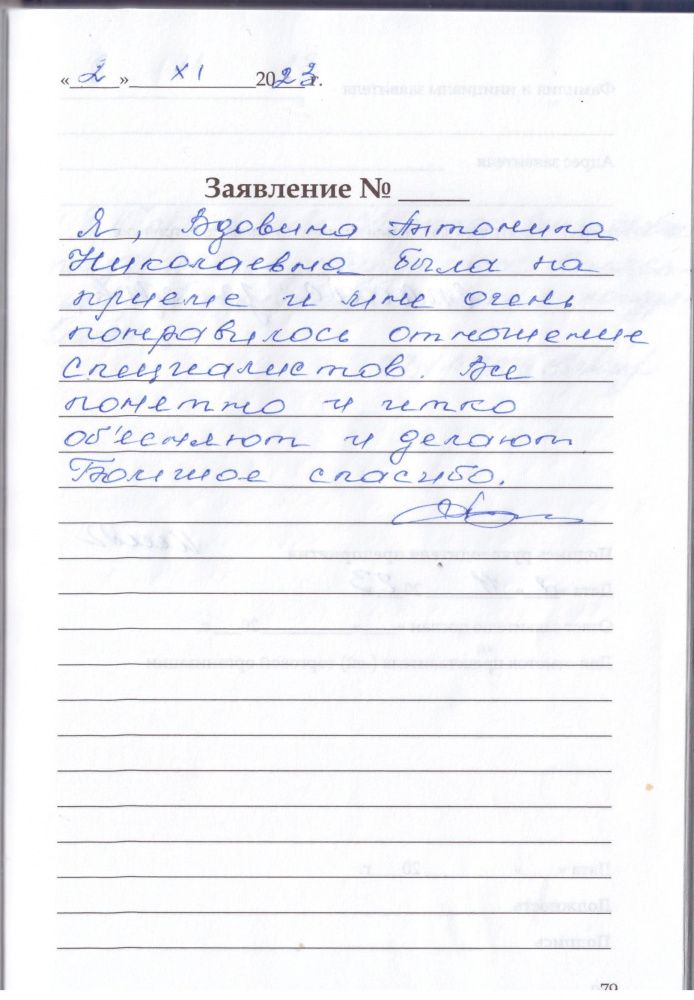 « 2 » XI 2023 г.
Заявление № _____
Я, Вдовина Антонина
Николаевна была на
приеме и мне очень
понравилось отношение
специалистов. Все
понетно и четко
об'есняют и делают
Большое спасибо.
79